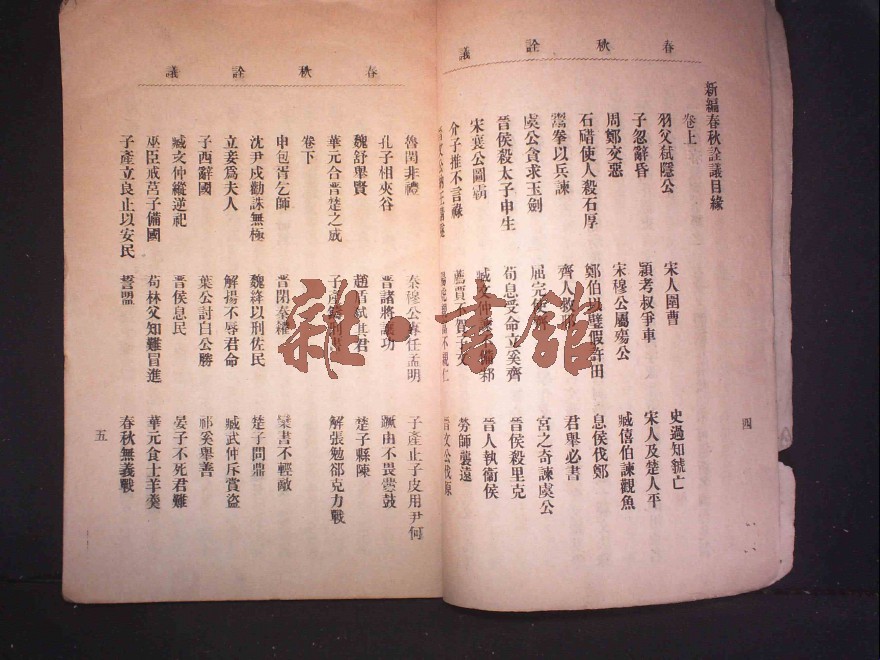 春秋詮議
新編春秋詮議目錄
卷上
羽父弑隱公 宋人圍曹 史過知虢亡
子忽辭昏 潁考叔爭車 宋人及楚人平
周鄭交惡 宋穆公屬殤公 臧僖伯諫觀魚
石碏使人殺石厚 鄭伯以璧假許田 息侯伐鄭
鬻拳以兵諫 齊人救邢 君舉必書
虞公貪求玉劍 屈完使 宮之奇諫虞公
晉侯殺太子申生 荀息受命立奚齊 晉侯殺里克
宋襄公圖霸 臧文仲備邾 晉人執衞侯
介子推不言祿 蔿賈不賀子文 勞師襲遠
晉文公 晉文公伐原
四
春秋詮議
魯閏非禮 秦穆公專任孟明 子產止子皮用尹何
孔子相夾谷 晉諸將讓功 蹶由不畏釁鼓
魏舒舉賢 趙盾弑其君 楚子縣陳
華元合晉楚之成 子產鑄刑書 解張勉郤克力戰
卷下
申包胥乞師 晉閉秦糴 欒書不輕敵
沈尹戌勸誅無極 魏絳以刑佐民 楚子問鼎
立妾爲夫人 解揚不辱君命 臧武仲斥賞盜
子西辭國 葉公討白公勝 祁奚舉善
臧文仲縱逆祀 晉侯息民 晏子不死君難
巫臣戒莒子備國 荀林父知難冒進 華元食士羊羹
子產立良止以安民 誓盟 春秋無義戰
五
雜·書館